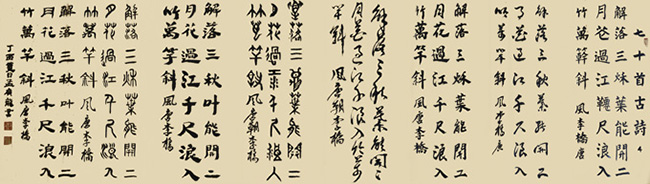 七十首古詩
解落三秌葉能開二
月芲過江韆尺浪入
竹萬簳斜 風李橋唐
解落三秋葉能開二
月花過江千尺浪入
竹萬竿斜 風李橋唐
解落三秋葉能開二
月花過江千尺浪入
竹萬竿斜 風唐李橋
解落三秋葉能開二
月花過江千尺浪入竹萬
竿斜 風唐朝李橋
解落三秋葉能開二
月花過江千尺浪入
竹萬竿斜 風唐朝李橋
解落三秋叶能開二
月花過江千尺浪入
竹萬竿斜 風唐李橋
解落三秌葉能開二
月花過江千尺浪入
竹萬竿斜 風唐李橋
解落三秋葉能開二
月花過江千尺浪入
竹萬竿斜 風唐李橋
丁酉夏日孟龍書